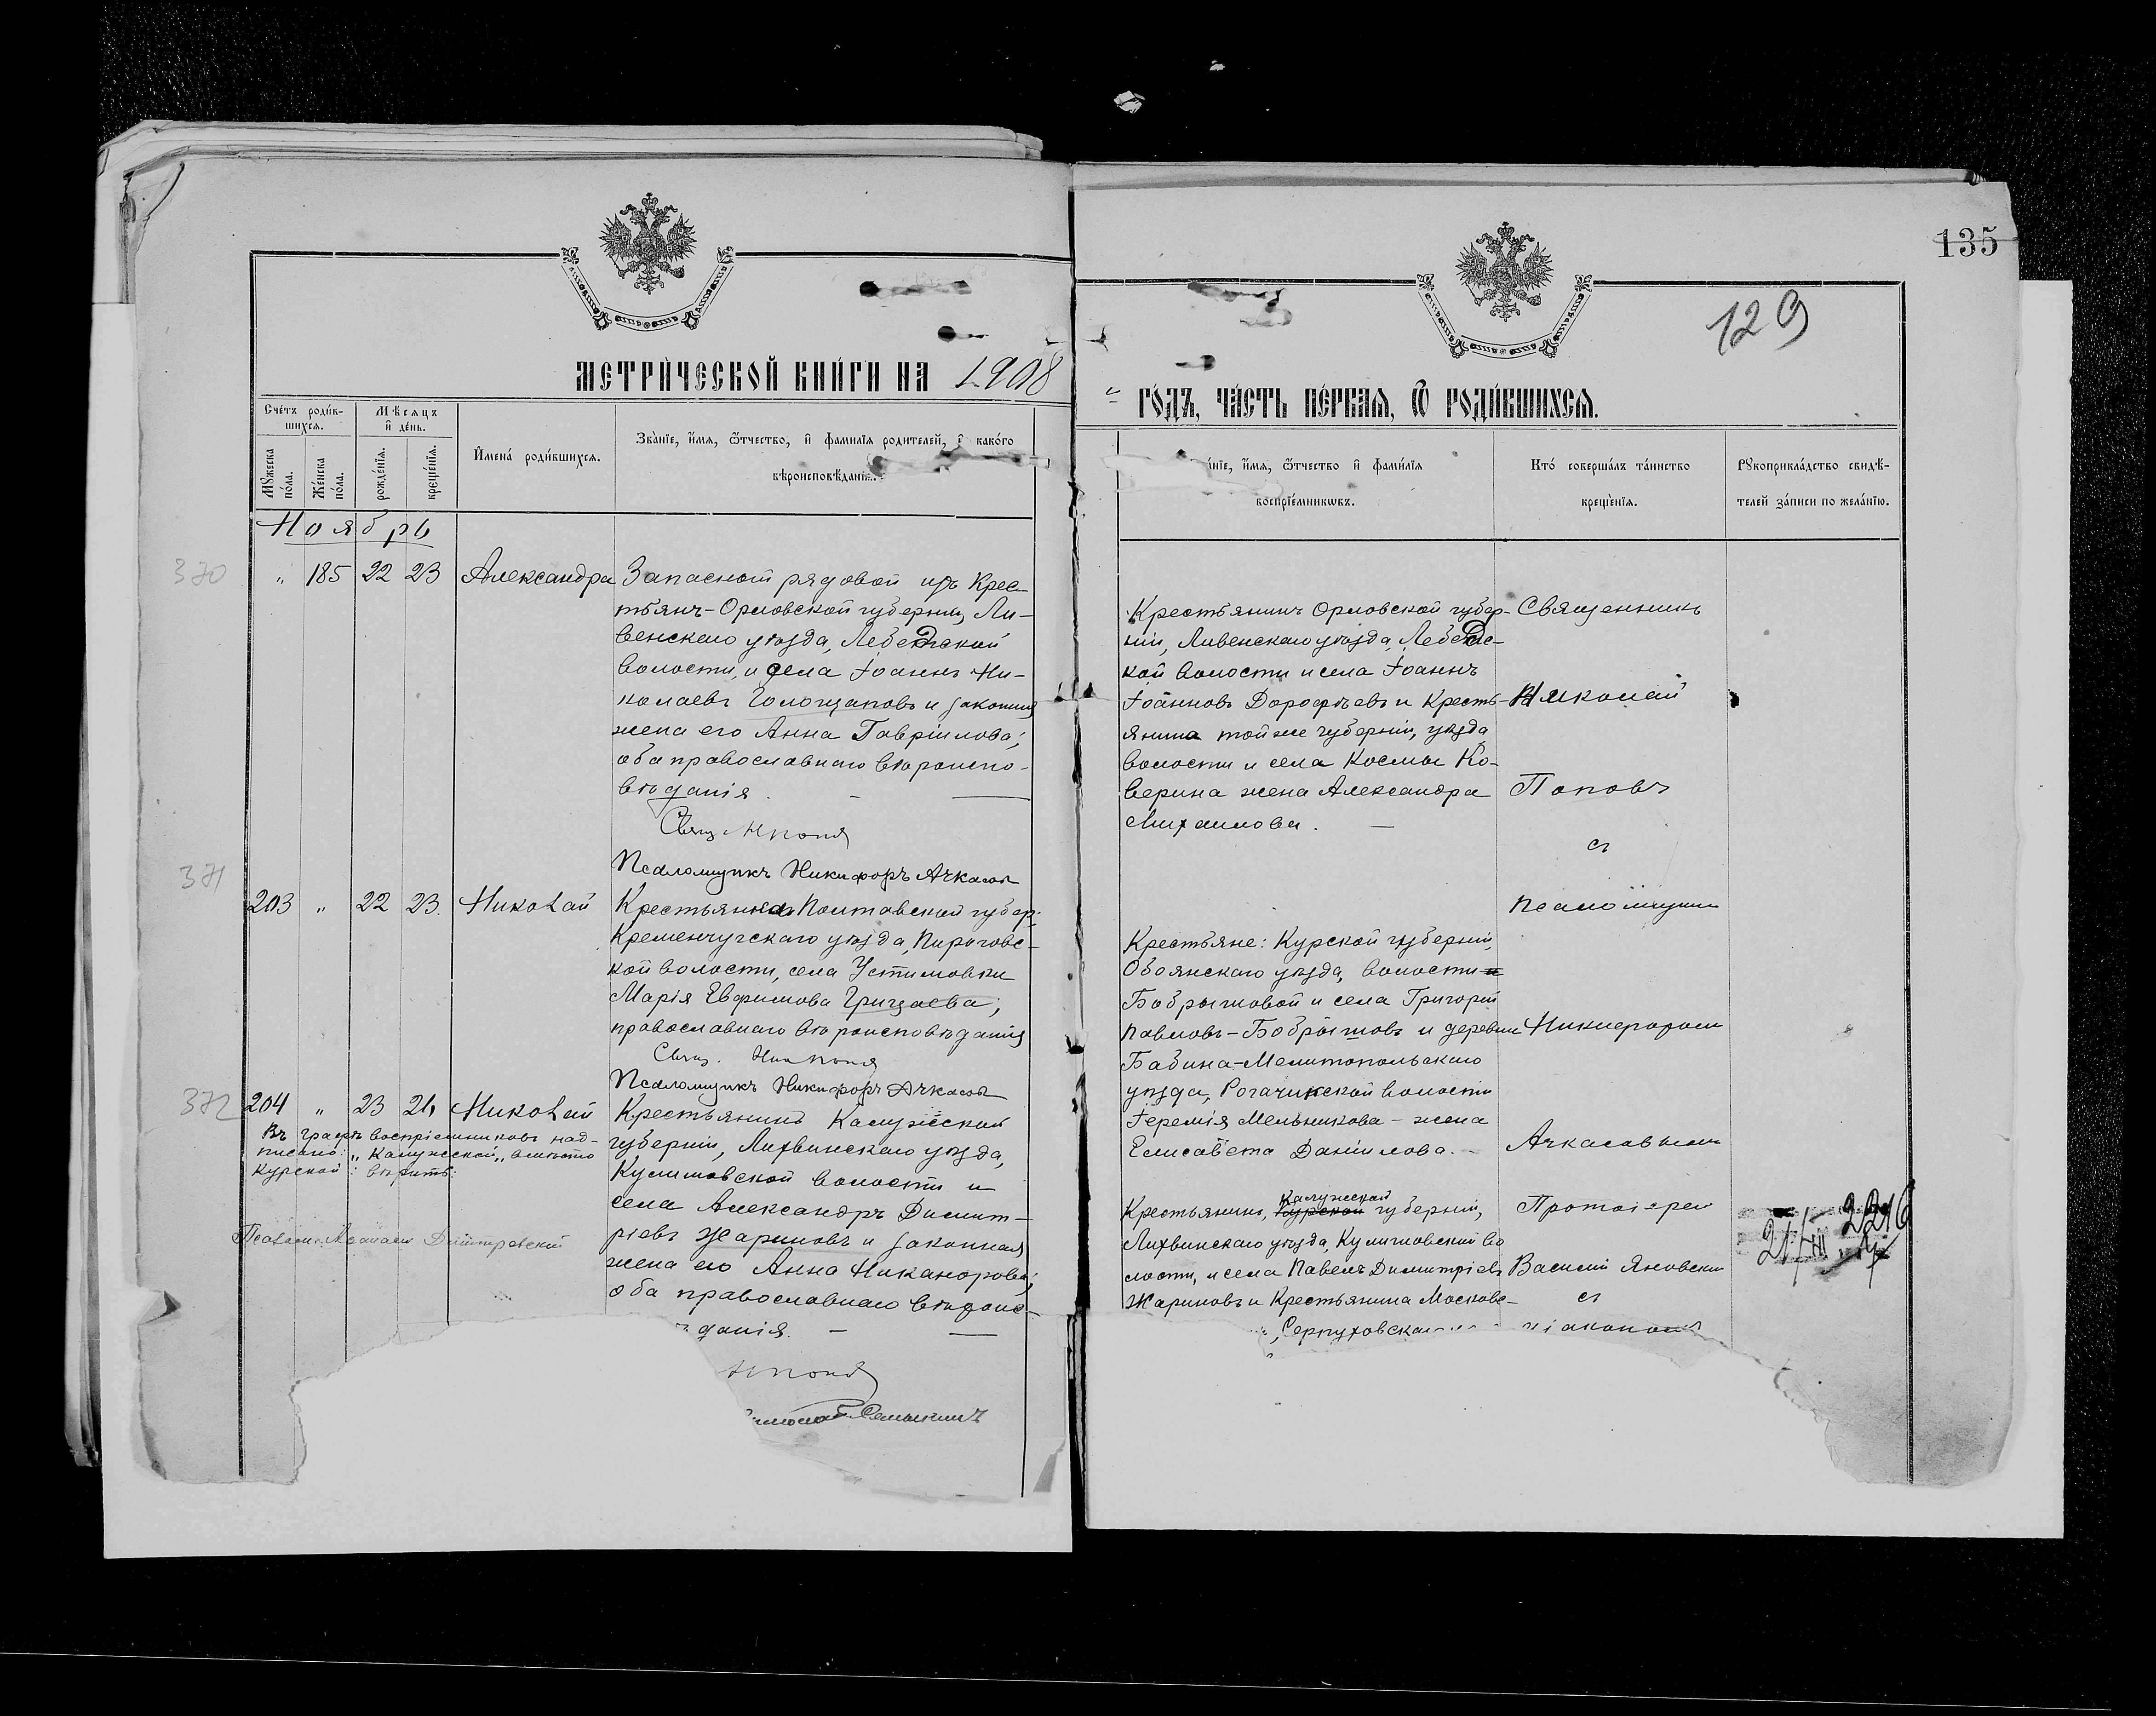 135
129
МЕТРИЧЕСКОЙ КНИГИ НА 1908
ГОДЪ, ЧАСТЬ ПЕРВАЯ, Ѿ РОДИВШИХСЯ.
Счетъ родив-
шихся.
Мужеска
пола.
Женска
пола.
Мѣсяцъ
и день.
рожденія.
крещенія.
Имена родившихся.
Званіе, имя, ѿтчество, и фамилія родителей, и какого
вѣроисповѣданія.
аніе, имя, ѿтчество и фамилія
воспріемникѡвъ.
Кто совершалъ таинство
крещенія.
Рукоприкладство свидѣ-
телей записи по желанію.
Ноябрь
370
" 185 22 23 Александра
Запасной рядовой изъ Крес-
тьянъ-Орловской губерніи, Ли-
венскаго уѣзда, Лебедской
волости, и села Іоаннъ Ни-
колаевъ Голощаповъ и законная
жена его Анна Гавріилова;
оба православнаго вѣроиспо-
вѣданія.
Свящ. Н Попов
Псаломщикъ Никифоръ Ачкасов
Крестьянинъ Орловской губер-
ніи, Ливенскаго уѣзда, Лебедс-
кой волости и села Іоаннъ
Іоанновъ Дорофѣевъ и Кресть-
янина той же губерніи, уѣзда
волости и села Космы Ко-
верина жена Александра
Михаилова.
Священникъ
Николай
Поповъ
съ
псаломщикомъ
Никифоромъ
Ачкасовымъ
371
203 " 22 23. Николай
Крестьянка Полтавской губер.
Кременчугскаго уѣзда, Пироговс-
кой волости, села Устимовки
Марія Евфимова Грицаева;
православнаго вѣроисповѣданія
Свящ. Ник Попов
Псаломщикъ Никифоръ Ачкасов
Крестьяне: Курской губерніи,
Обоянскаго уѣзда, волости и
Бобрышовой и села Григорій
Павловъ-Бобрышовъ и деревни
Бабина-Мелитопольскаго
уѣзда, Рогачикской волости
Іеремія Мельникова - жена
Елисавета Даніилова.
372
204 " 23 24 Николай
Въ графѣ воспріемниковъ над-
писано: "Калужской" вмѣсто
Курской: вѣрить:
Дмитровскій
Крестьянинъ Калужской
губерніи, Лихвинскаго уѣзда,
Кулишовской волости и
села Александръ Димит-
ріевъ Жариновъ и законная
жена его Анна Никанорова;
оба православнаго вѣроис-
данія.
Н Попов
Крестьянинъ, Курской Калужской губерніи,
Лихвинскаго уѣзда, Кулишовской во
лости, и села Павелъ Димитріевъ
Жариновъ и Крестьянина Московс-
Серпуховска
Протоіерей
Василій Яновскій
съ
діакономъ